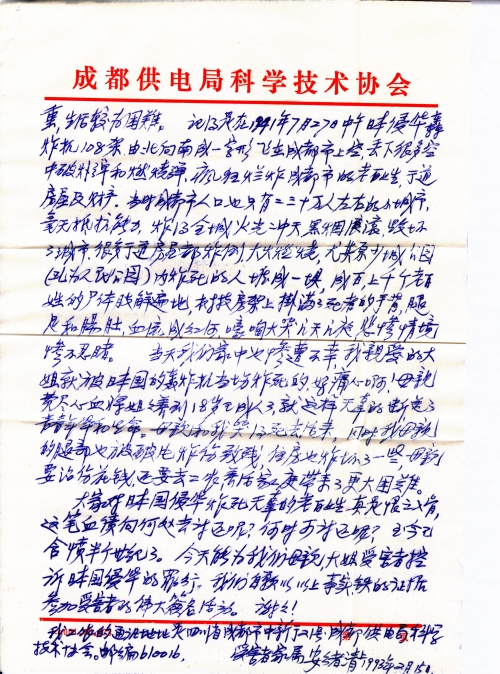 成都供电局科学技术协会
重,生活较为困难。 记得是在1941年7月27日中午日本侵华轰
炸机108架由北向南成一字形飞在成都市上空,丢下很多空
中破炸弹和燃烧弹,疯狂烂炸成都市的老百姓,干道
房屋及财产。当时成都市人口也只有二三十万人左右的小城市,
毫无抵抗能力,炸得全城火光冲天黑烟滚滚,毁坏
了城市,很多干道房屋都炸倒大火燃烧,尤其原少城公园
(现为人民公园)内炸死的人堆成一块,成百上千个老百
姓的尸体肢解遍地,树技房架上掛满了死者的手背,腿
足和肠肚,血流成红河嚎啕大哭,悲惨情境
惨不忍睹。 当天我们家中也惨遭不幸,我親爱的大
姐就被日国的轰炸机当场炸死的好痛心啊!母親
费尽心血将姐养到18岁已成人了,就这样无辜的断送了
青春年华和生命。母親和我哭得死去活来,同时我母親
的腿部也被破片炸伤致残,住房也炸坏了一些,母親
要治伤花钱,还要去工作养活家庭带来了更大困难。
大家对日本国侵华炸死无辜的老百姓真是恨之入骨,
这笔血债向何处去讨还呢?何时可讨还呢?至今已
含愤半个世纪了。今天能为我们母親大姐受害者控
诉日国侵华的罪行,我们有颗以以上事实铁的证据
参加受害者的伟大签名活动。 谢谢!
我工作的通讯地址是四川省成都市中新街 成都供电局科学
技术协会。邮编610016。 受害者家属 安绪清 1993年2月15日